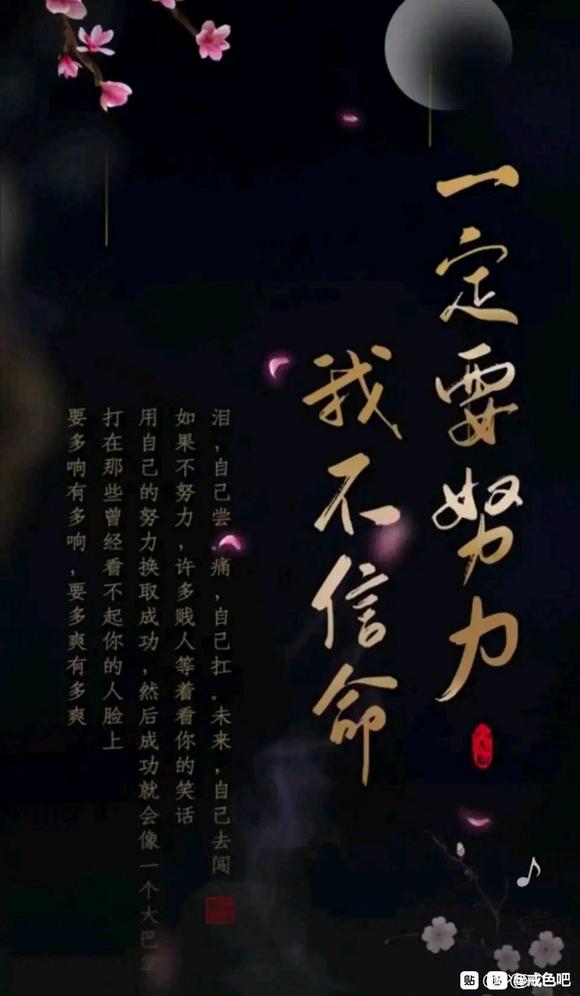 一定要努力
我不信命
泪，自己尝。痛，自己扛。未来，自己去闯
如果不努力，许多贱人等着看你的笑话
用自己的努力换取成功，然后成功就会像一个大巴掌
打在那些曾经看不起你的人脸上
要多响有多响，要多爽有多爽
贴 贴 @戒色吧